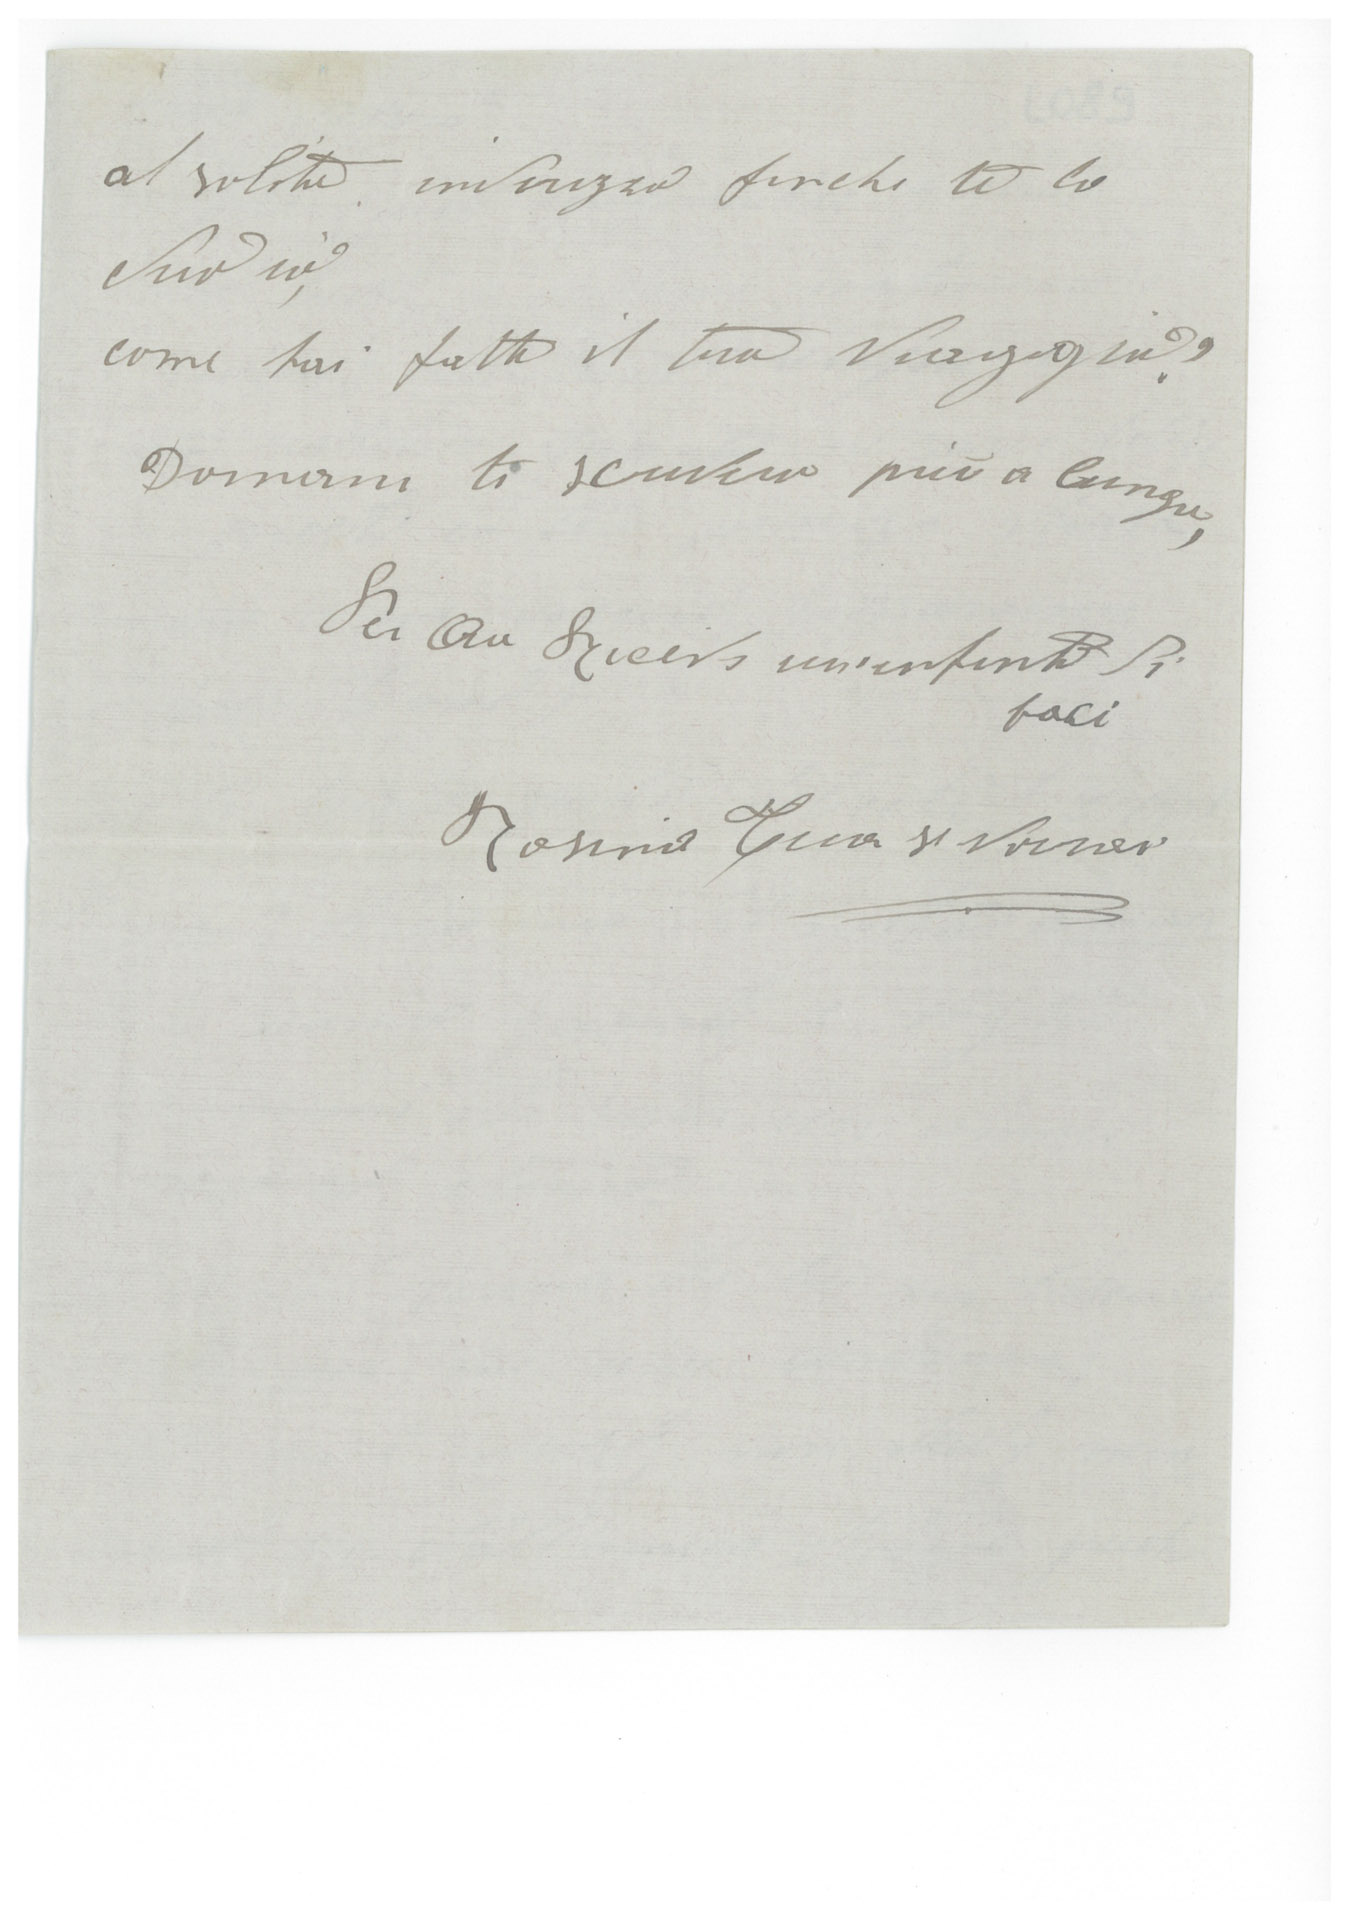 al solito indirizzo finche te lo
dirò io,
come hai fatto il tuo viaggio?
Domani ti scriverò più a lungo,
Per Ora Ricevi un'infinità di
baci
Rosina Tua